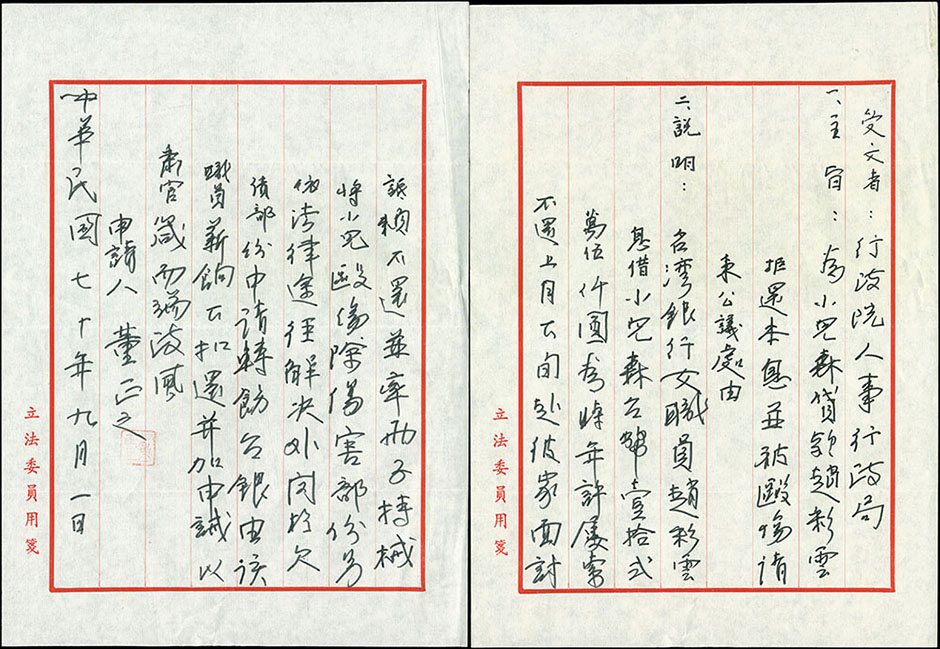 受文者：行政院人事行政局
一、主旨：為小兒森貸款趙彩雲
拒還本息並被毆傷請
秉公議處由
二、說明：台灣銀行女職員趙彩雲
息借小兒森台幣壹拾弍
萬伍仟圓為時年許屢索
不還上月下旬赴彼家面討
詎賴不還並率刑子持械
將小兒毆傷除傷害部份另
依法律途徑解決外関於欠
債部份申請轉飭台銀由該
職員薪餉下扣還并加申誡以
肅官箴而端政風
申請人 董正之
中華民國七十年九月一日
立法委員用箋
立法委員用箋